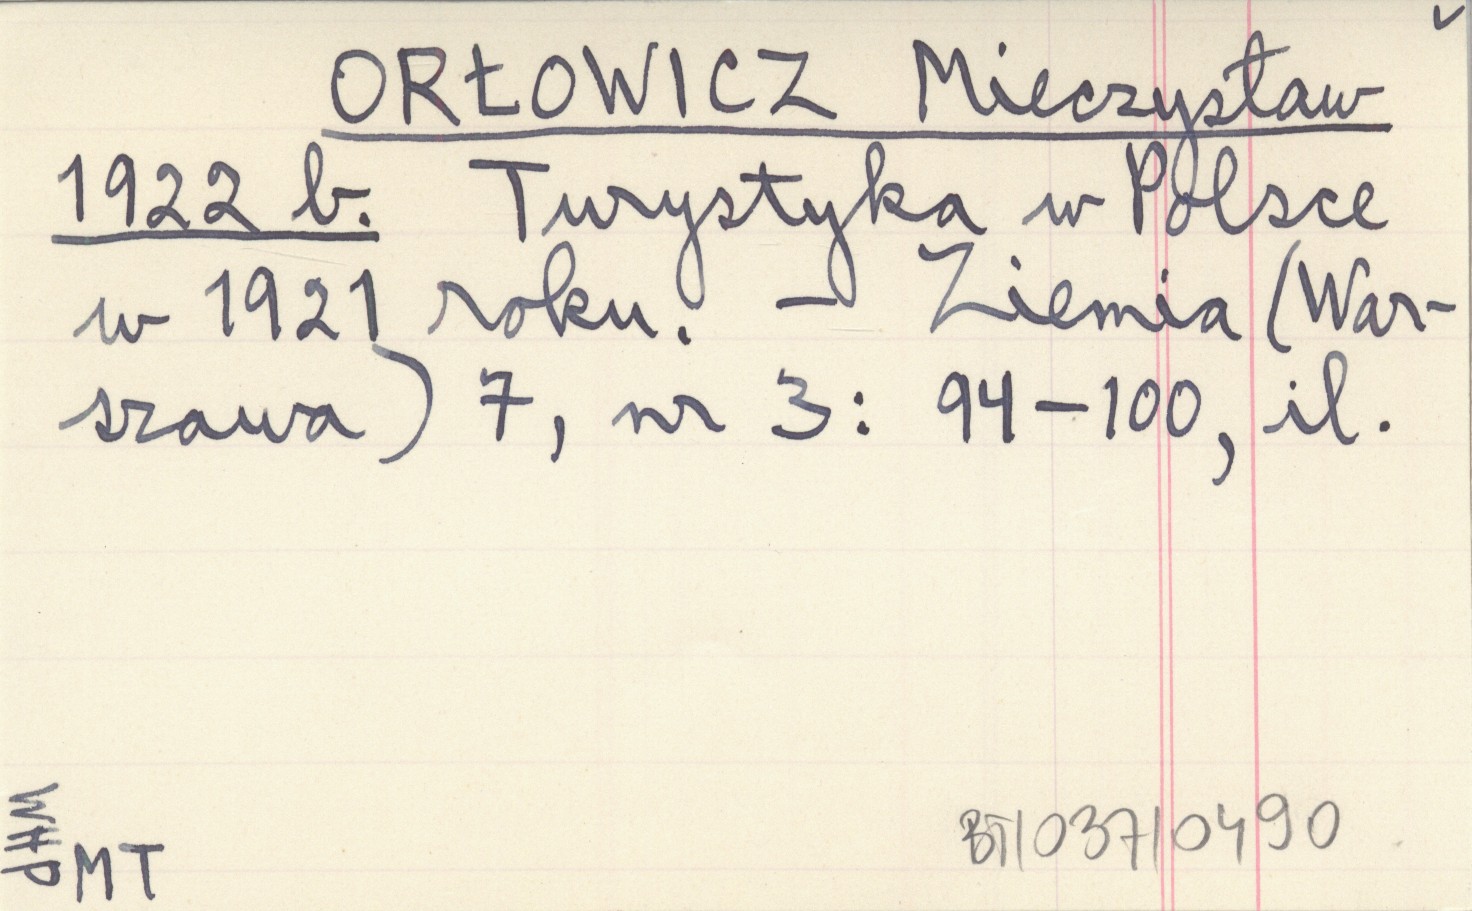 ✓
ORŁOWICZ Mieczysław
1922 b. Turystyka w Polsce
w 1921 roku. – Ziemia (War-
szawa) 7, nr 3: 94–100, il.
PAM
MT
BT/037/0490